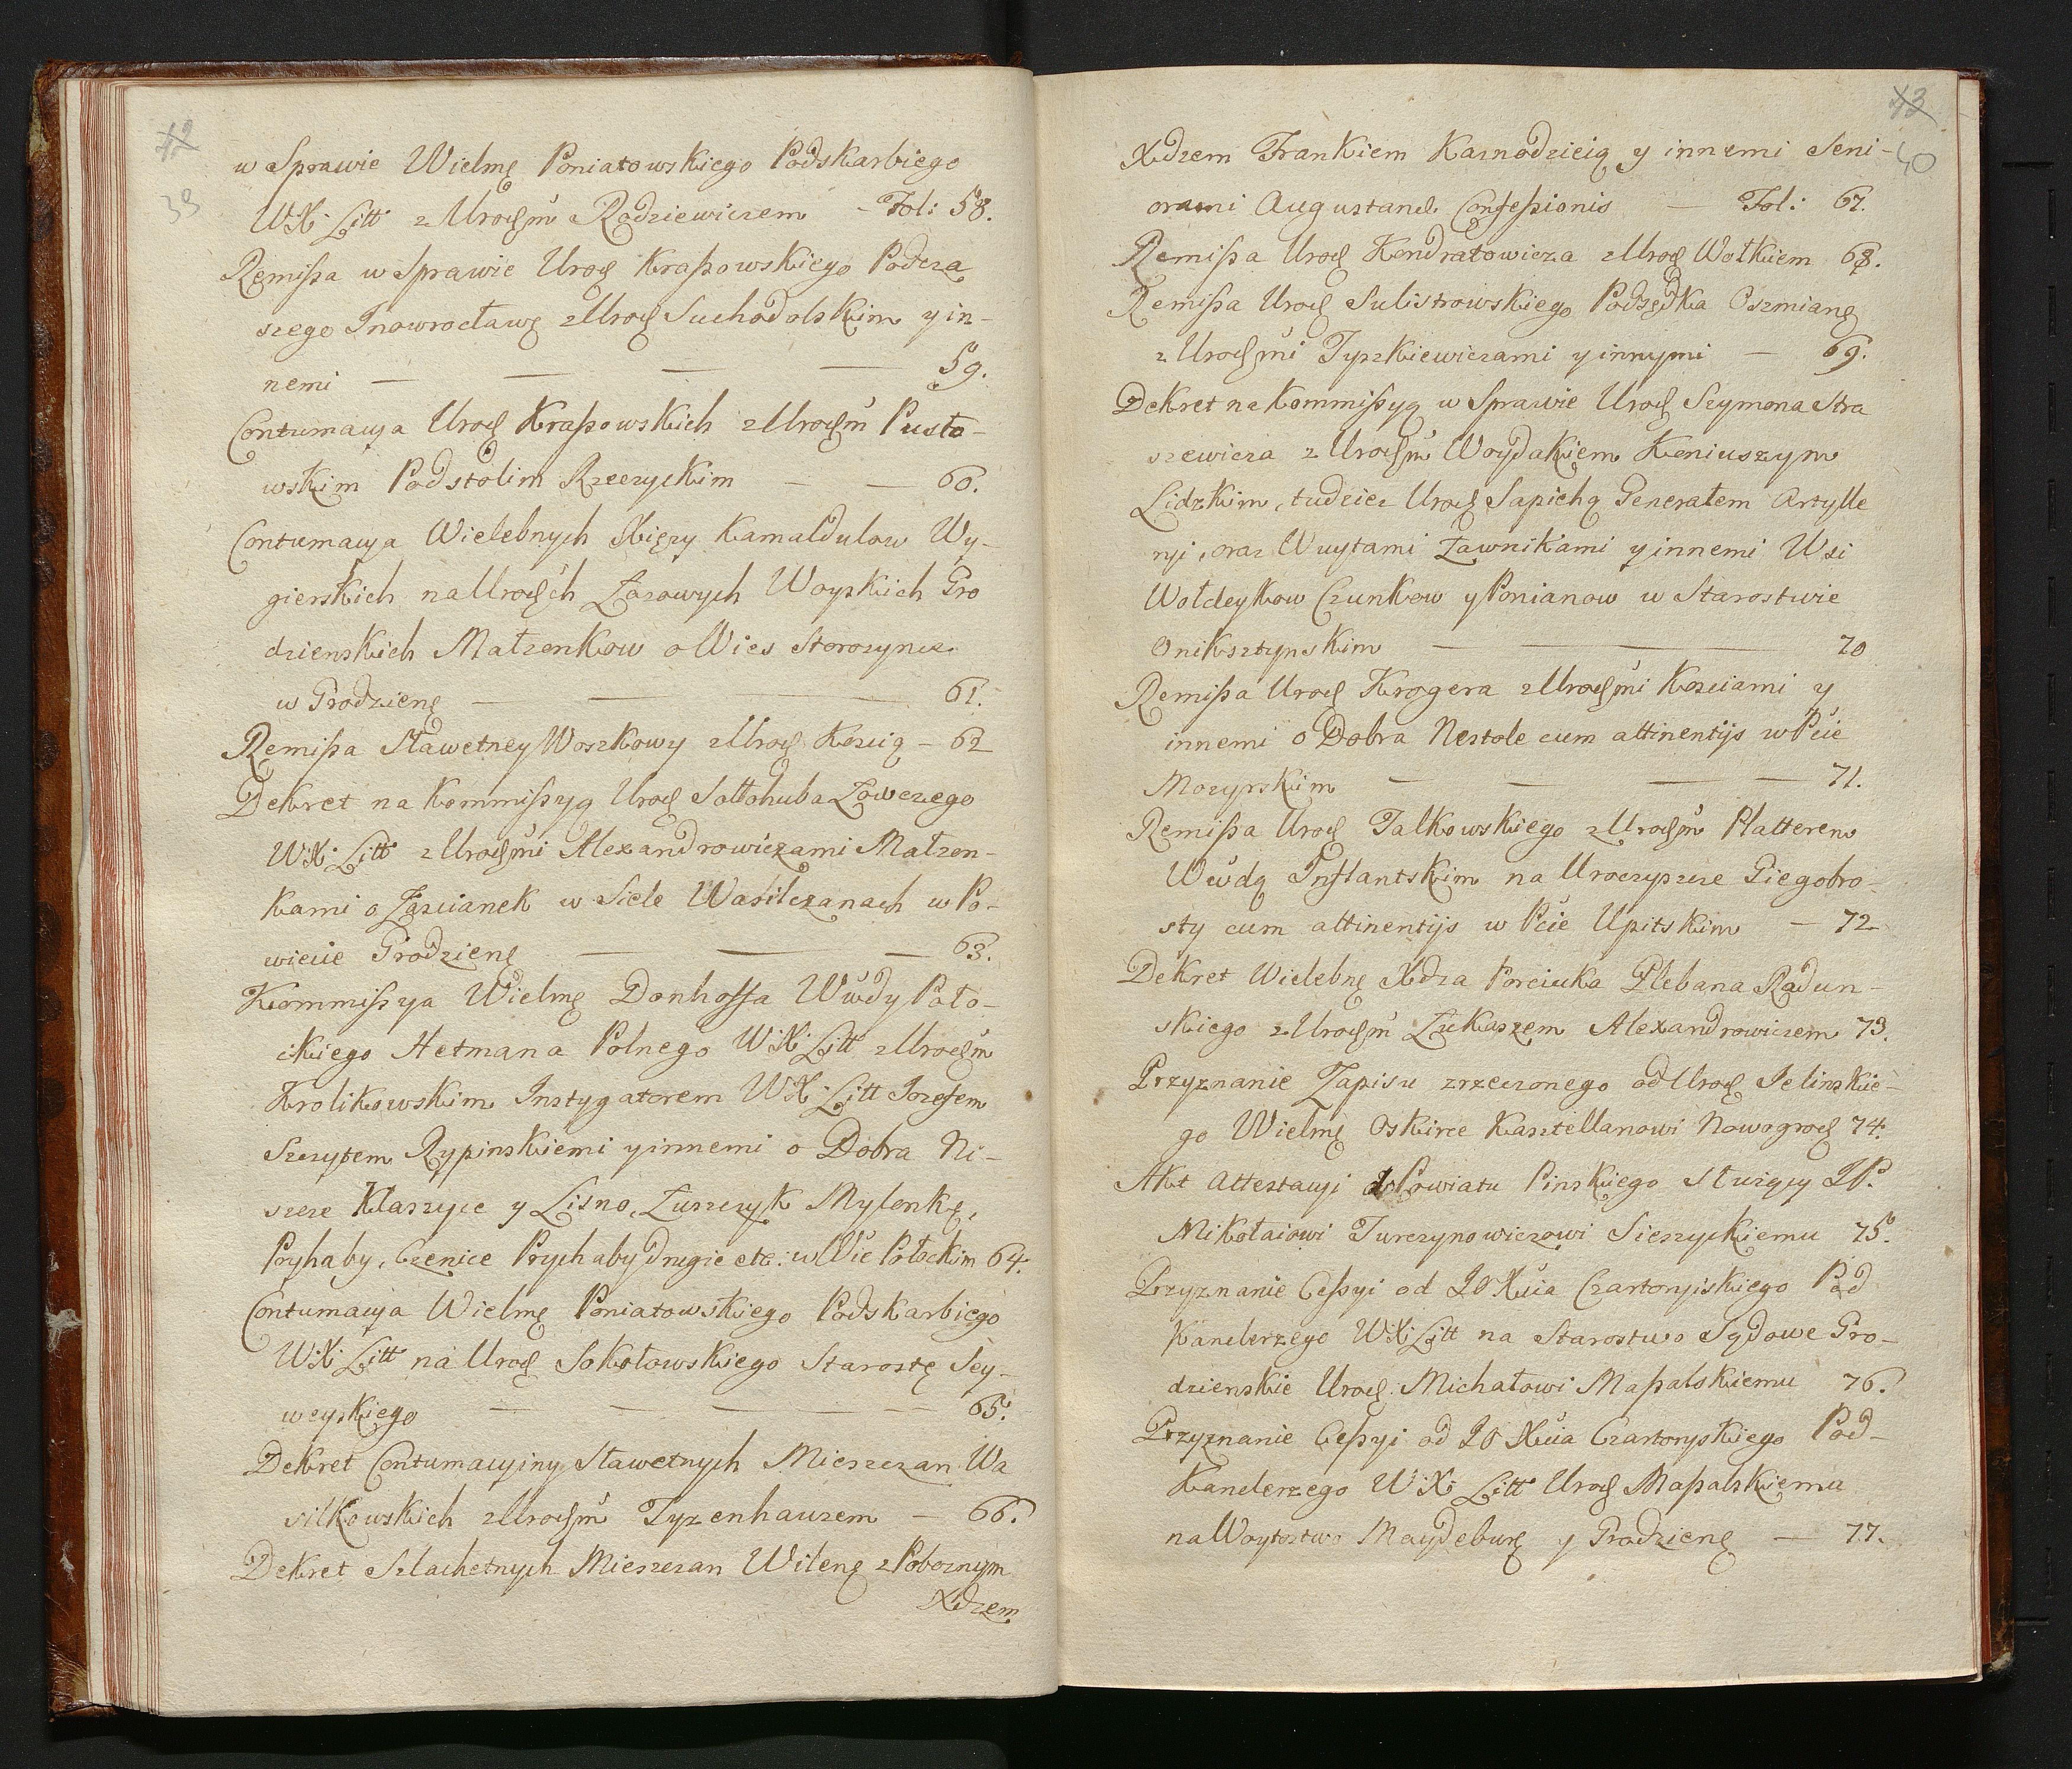 42
39
w Sprawie Wielmę Poniatowskiego Podskarbiego
WX: Litt z Urochm Rodziewiczem – Fol: 58.
Remißa w Sprawie Uroch Kraßowskiego Podcza
szego Inowrocławę z Uroch Suchodolskim y in-
nemi — — — — 59.
Contumacya Uroch Kraßowskich z Urochm Pusto-
wskim Podstolim Rzeczyckim — — 60.
Contumacya Wielebnych Xięzy Kamaldulow Wy-
gierskich na Urochch Łazowych Woyskich Gro
dzienskich Małzenkow o Wies Storozynce
w Grodzienę — — — 61.
Remißa Sławetney Woszkowy z Uroch Kozcią – 62
Dekret na Kommißyą Uroch Sołłohuba Łowczego
WX: Litt z Urochmi Alexandrowiczami Małzen-
kami o Zascianek w Siele Wasilczanach w Po-
wiecie Grodzienę — — — 63.
Kommißya Wielmę Donhoffa Wwdy Poło-
ckiego Hetmana Polnego WX: Litt z Urochm
Krolikowskim Instygatorem WX: Litt Jozefem
Szczytem Rypinskiemi y innemi o Dobra Ni-
szcze Klaszyce y Lisno, Łuszczyk Mylenkę,
Pryhaby, Czenice Prychaby drugie etc: w Wie Połockim 64.
Contumacya Wielmę Poniatowskiego Podskarbiego
WX: Litt na Uroch Sokołowskiego Starostę Sey-
weyskiego — — — — 65.
Dekret Contumacyiny Sławetnych Mieszczan Wa
silkowskich z Urochm Tyzenhauzem — 66.
Dekret Szlachetnych Mieszczan Wilenę z Poboznym
Xdzem
43
40
Xdzem Frankiem Kaznodzieią y innemi Seni-
orami Augustanæ Confeßionis — Fol: 67.
Remißa Uroch Kondratowicza z Uroch Wołkiem 68.
Remißa Uroch Sulistrowskiego Podsędka Oszmianę
z Urochmi Tyszkiewiczami y innymi — 69.
Dekret na Kommißyą w Sprawie Uroch Szymona Stra
szewicza z Urochm Woydakiem Koniuszym
Lidzkim, tudziez Uroch Sapiehą Generałem Artylle
ryi, oraz Wuytami Ławnikami y innemi Wsi
Wołdeykow Czunkow y Ponianow w Starostwie
Oniksztynskim — — — 70
Remißa Uroch Krogera z Urochmi Kozciami y
innemi o Dobra Nestole cum attinentijs w Pcie
Mozyrskim — — — — 71.
Remißa Uroch Talkowskiego z Urochm Platterem
Wwdą Inflantskim na Uroczyszcze Giegobro-
sty cum attinentijs w Pcie Upitskim — 72
Dekret Wielebnę Xdza Porciuka Plebana Radun-
skiego z Urochm Łukaszem Alexandrowiczem 73.
Przyznanie Zapisu zrzeczonego od Uroch Jelinskie-
go Wielmę Oskirce Kasztellanowi Nowogroch 74.
Akt Attestacyi do Powiatu Pinskiego słuzący JP.
Mikołaiowi Turczynowiczowi Sieszyckiemu 75.
Przyznanie Ceßyi od JO Xcia Czartoryiskiego Pod
Kanclerzego WX: Litt na Starostwo Sądowe Gro-
dzienskie Uroch: Michałowi Maßalskiemu 76.
Przyznanie Ceßyi od JO Xcia Czartoryskiego Pod-
Kanclerzego WX: Litt Uroch Maßalskiemu
na Woytostwo Maydeburę y Grodzienę — 77.